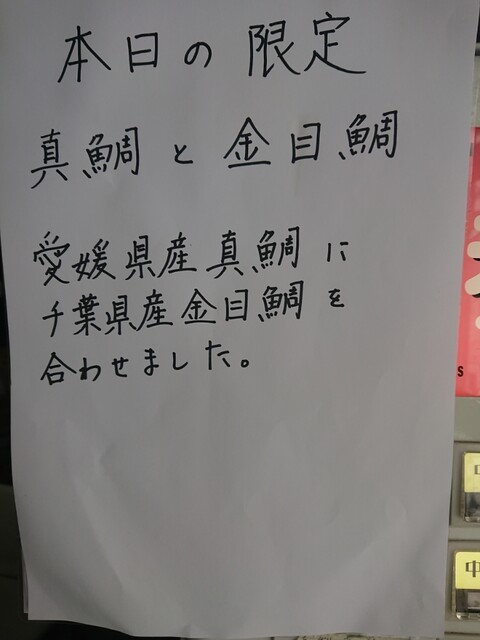 本日の限定
真鯛と金目鯛
愛媛県産真鯛に
千葉県産金目鯛を
合わせました。
中